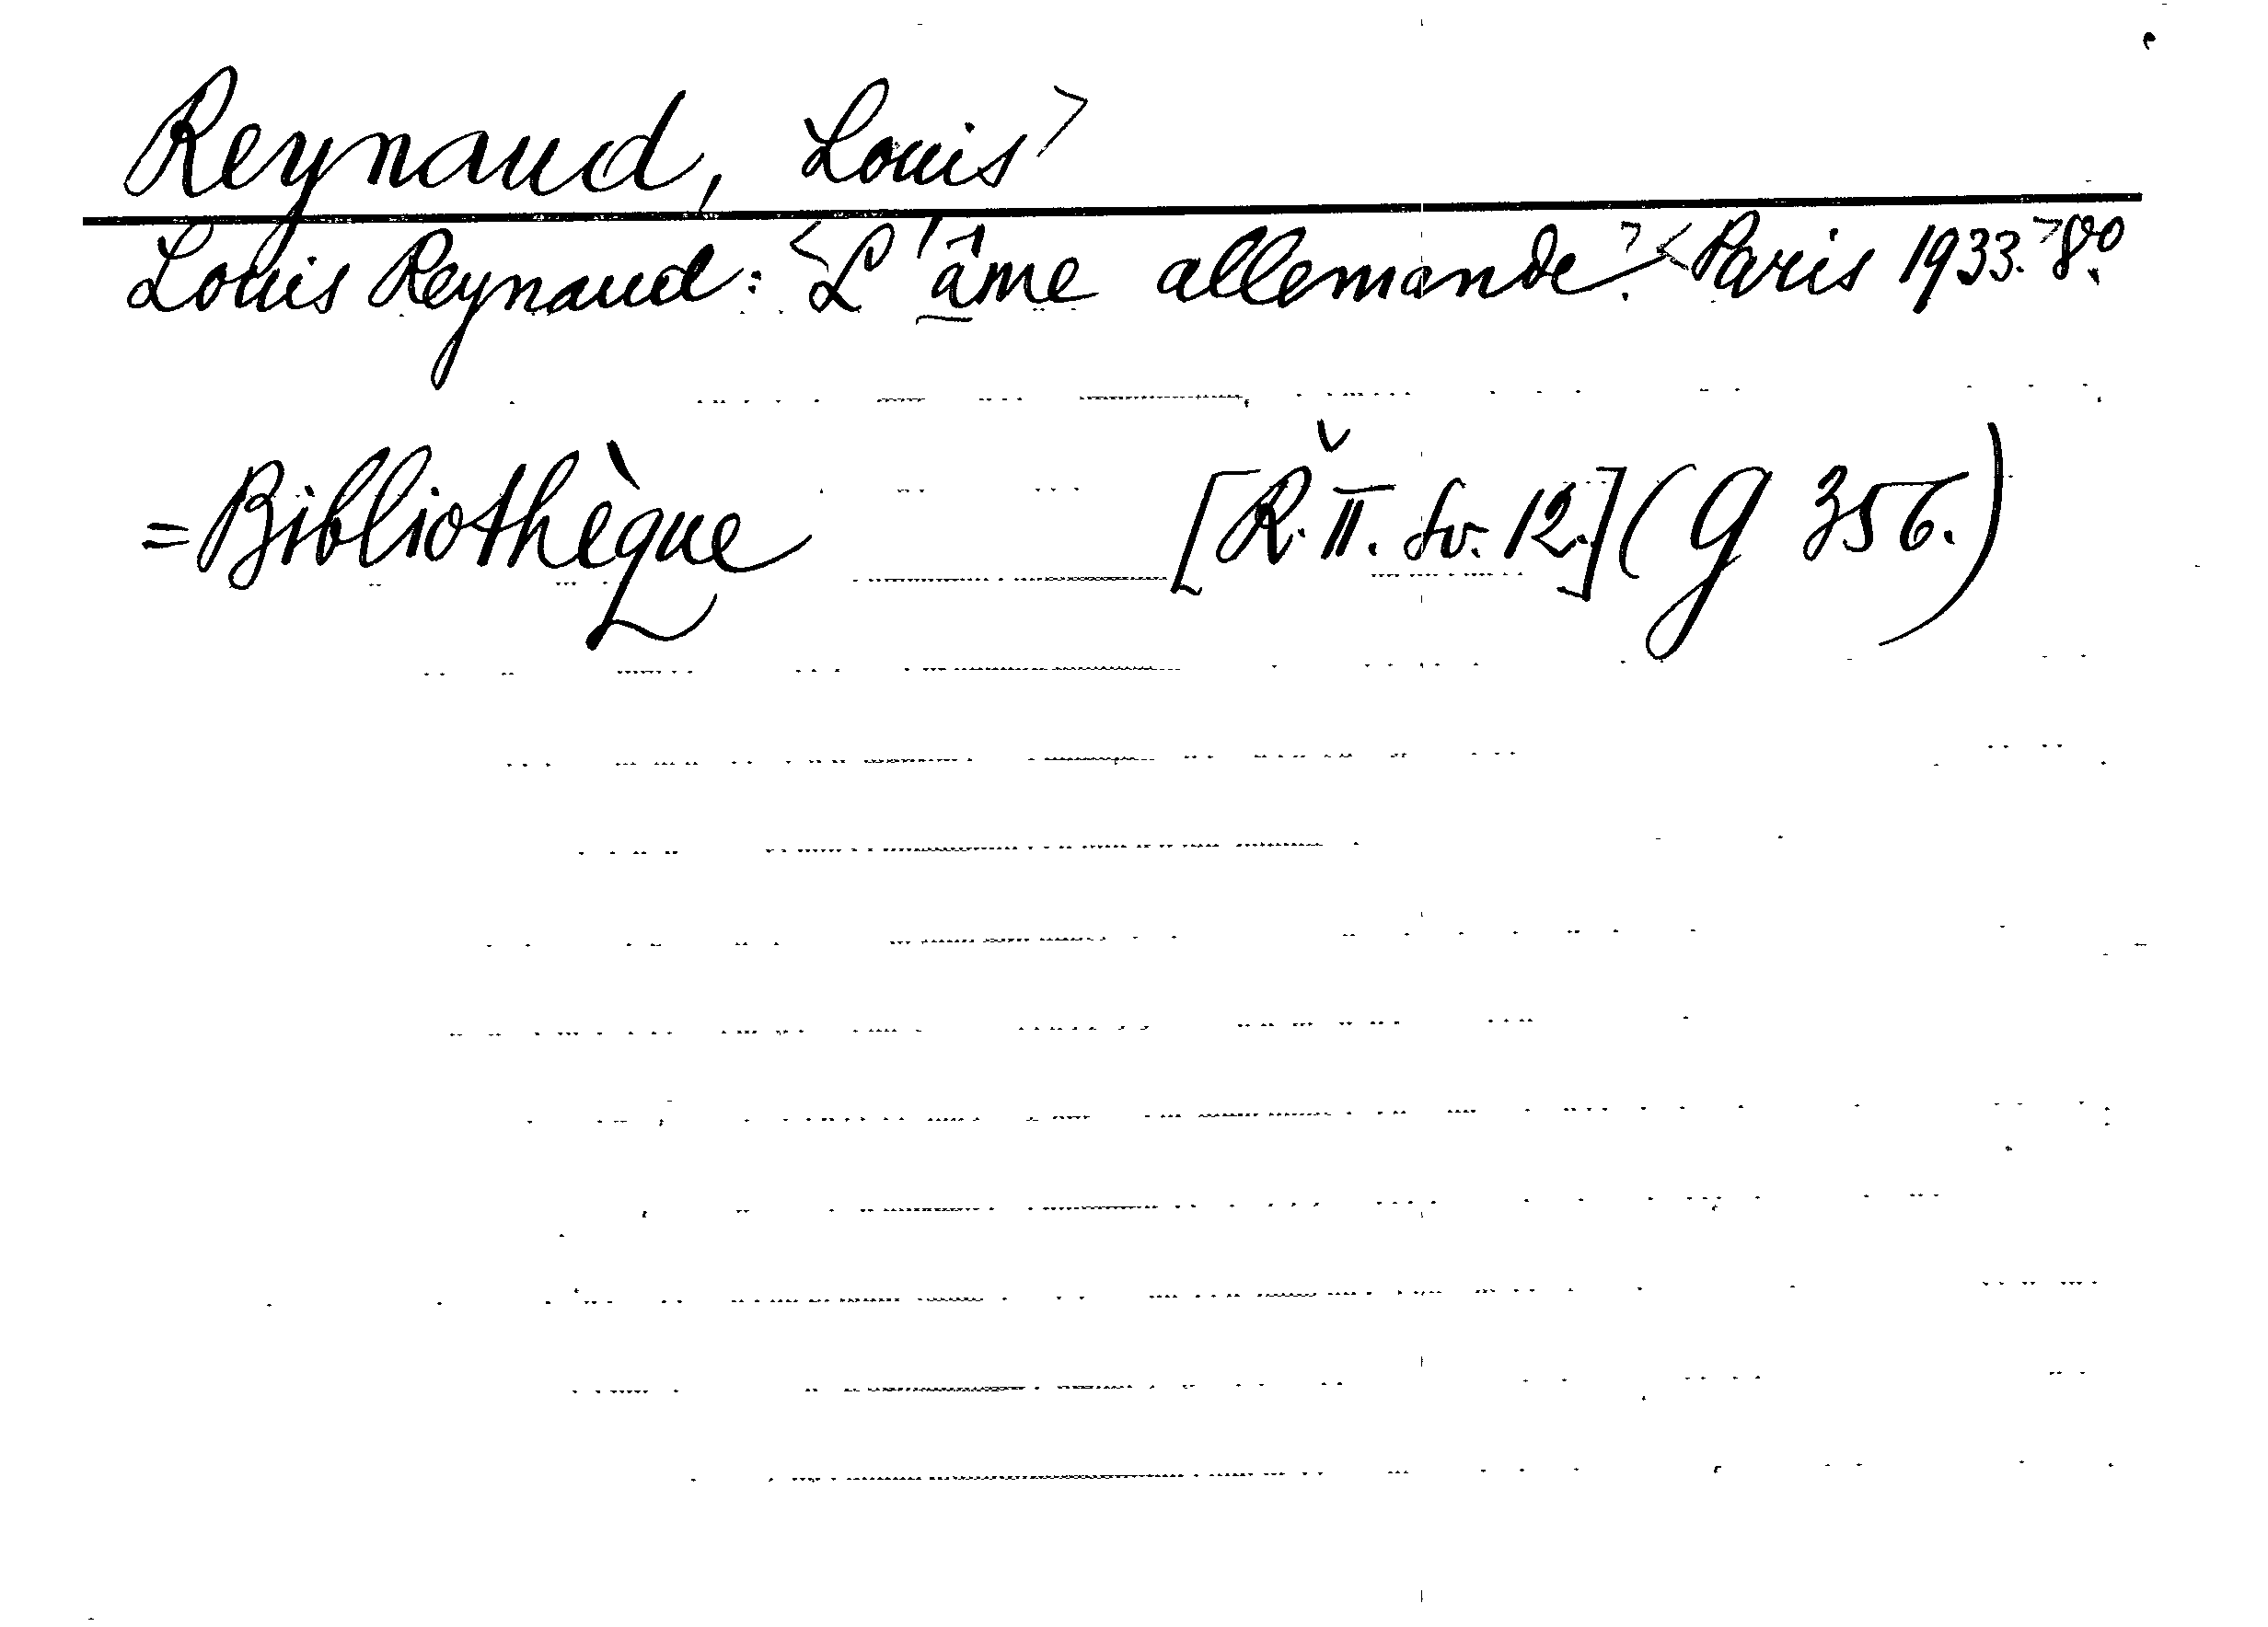 Reynaud, Louis>
Louis Reynaud: <L'âme allemande.> <Paris 1933.> 8º.
=Bibliothèque [Ř. II. sv. 12.] (G 356.)